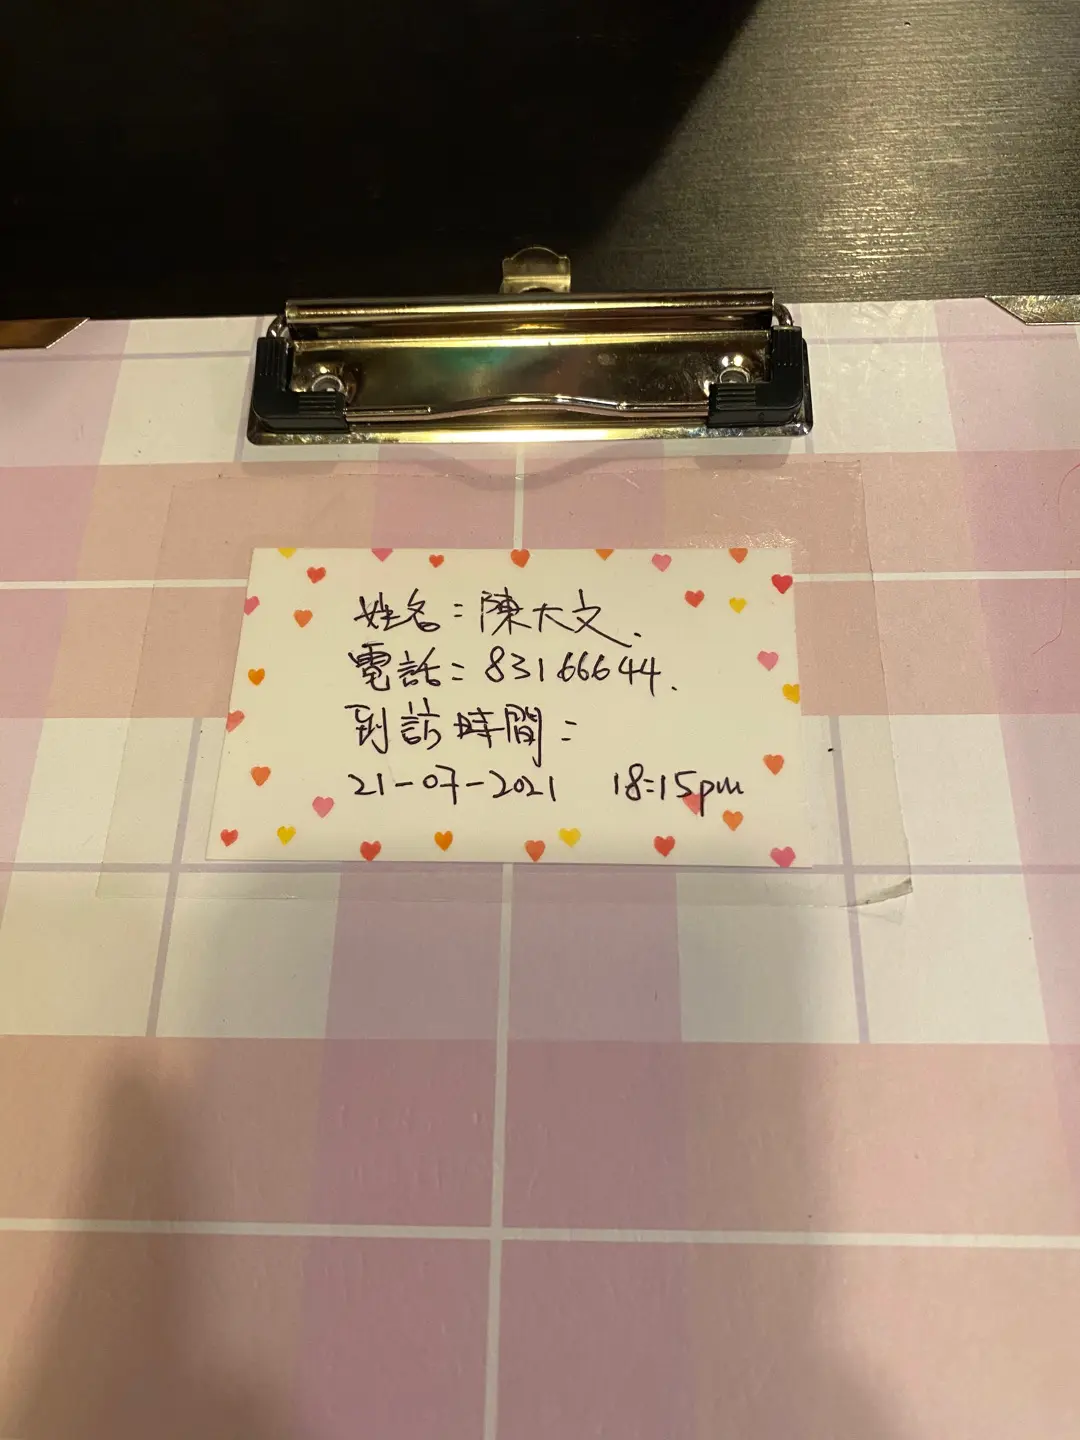 姓名:陳大文.
電話:83166644.
到訪時間:
21-07-2021 18:15pm